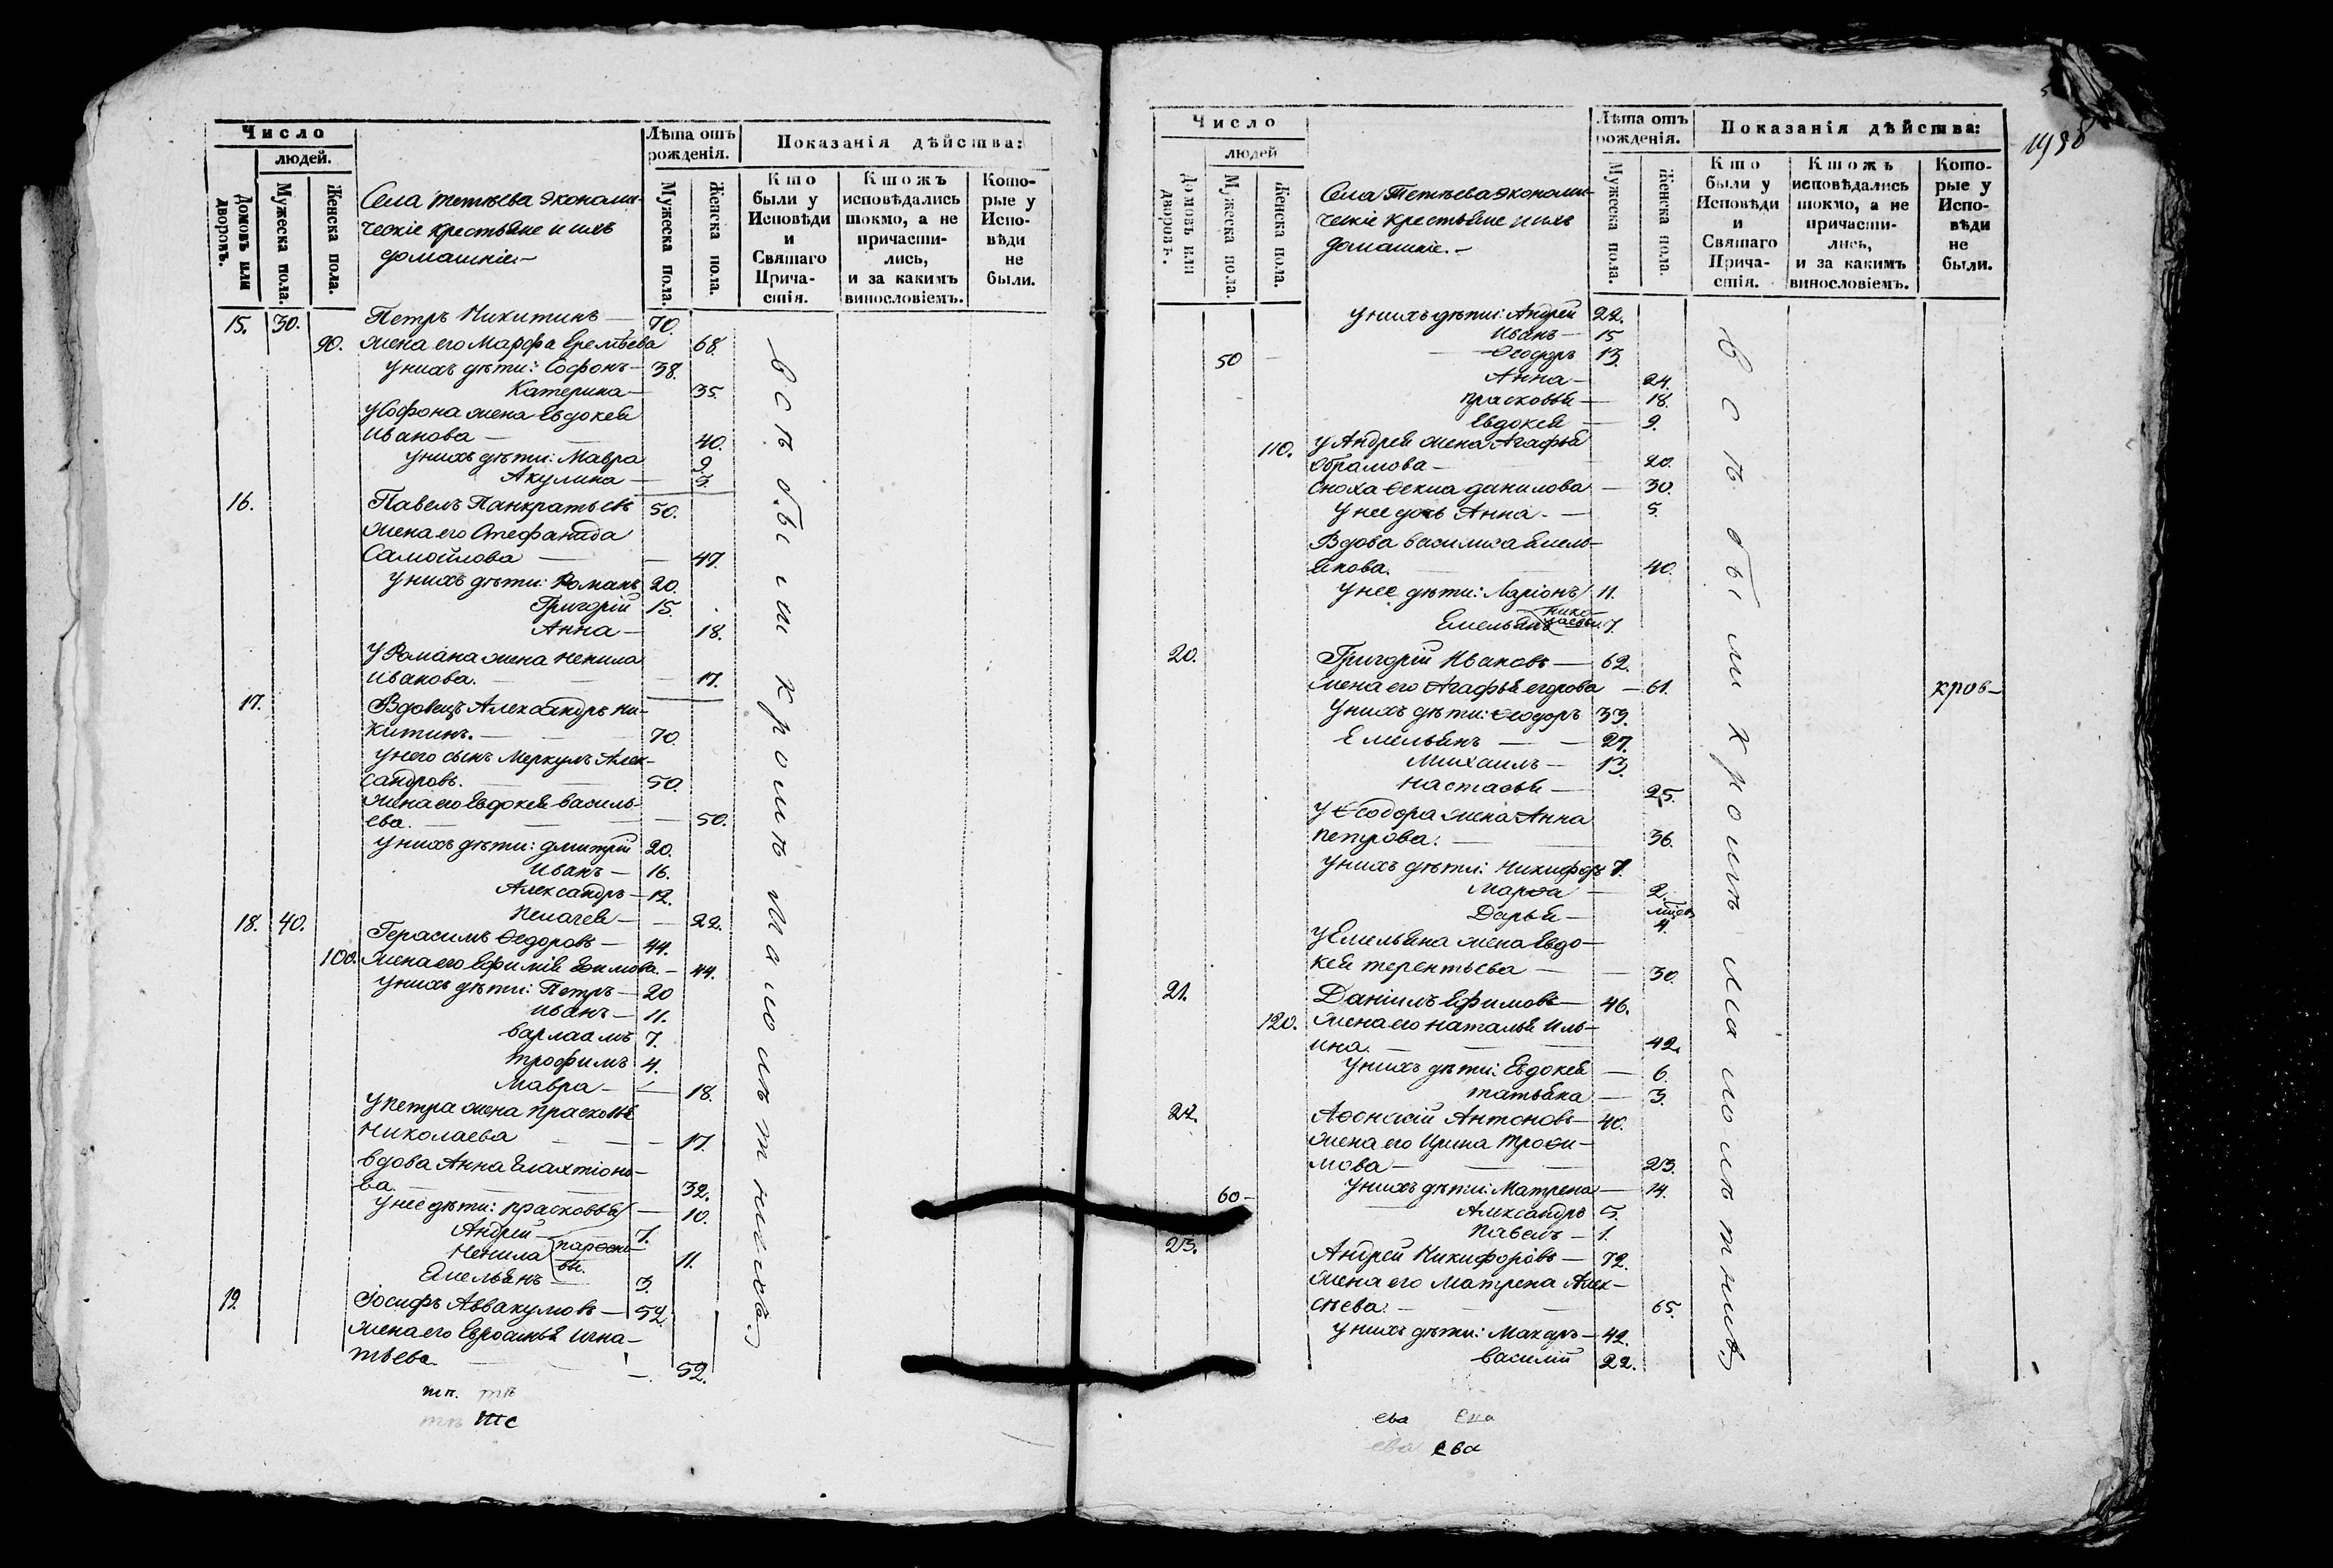 Число
людей.
Домовъ или дворовъ.
Мужеска пола.
Женска пола.
Села тетѣева экономи-
ческіе крестьяне и ихъ
домашніе.-
Лѣта отъ
рожденія.
Мужеска пола.
Женска пола.
Показанія дѣйства:
Кто
были у
Исповѣди
и
Святаго
Прича-
стія.
Ктожъ
исповѣдались
токмо, а не
причасти-
лись,
и за какимъ
винословіемъ.
Кото-
рые у
Испо-
вѣди
не
были.
15. 30. Петръ Никитинъ 70.
90. жена его Марфа Еремѣева 68.
у нихъ дѣти: Софонъ- 38.
Катерина- 35.
у Софона жена Евдокея
Иванова - 40.
у нихъ дѣти: Мавра 9.
Акулина - 3.
16. Павелъ Панкратьевъ 50.
жена его Стефанида
Самойлова - 47.
у нихъ дѣти: Романъ 20.
Григорій 15.
Анна - 18.
у Романа жена Ненила
Иванова. 17.
17. Вдовецъ Александръ Ни-
китинъ. 70.
у него сынъ Меркулъ Алек-
сандровъ. 50.
жена его Евдокея василь-
ева. 50.
у нихъ дѣти: дмитрій 20.
Иванъ - 16.
Александръ - 12.
Пелагея - 22.
18. 40. Герасимъ Ѳедоровъ - 44.
100. жена его Ефимія Ефимова - 44.
у нихъ дѣти: Петръ - 20
Иванъ - 11.
варлаамъ 7.
трофимъ 4.
Мавра - 18.
у петра жена прасковья
Николаева 17.
вдова Анна Галахтіоно-
ва. 32.
у нее дѣти: прасковья 10.
Андрей 7.
Ненила 11.
Емельянъ 3.
19. Іосифъ Аввакумовъ - 52.
жена его Евросинья Игна-
тьева. 52.
всѣ были кромѣ малолѣтнихъ
тѣ. тѣ
тѣ те
Число
людей
Домовъ или дворовъ.
Мужеска пола.
Женска пола.
Села Тетѣева экономи-
ческіе крестьяне и ихъ
домашніе.-
Лѣта отъ
рожденія.
Мужеска пола.
Женска пола.
Показанія дѣйства:
Кто
были у
Исповѣди
и
Святаго
Прича-
стія.
Ктожъ
исповѣдались
токмо, а не
причасти-
лись,
и за какимъ
винословіемъ.
Кото-
рые у
Испо-
вѣди
не
были.
у нихъ дѣти: Андрей 22.
Иванъ - 15
50 Ѳеодоръ 13.
Анна - 24.
прасковья - 18.
Евдокея - 9.
110. у Андрея жена Агафья
Абрамова - 20.
сноха Ѳекла данилова - 30.
у нее дочь Анна. - 5.
Вдова василиса Емель-
янова. 40.
у нее дѣти: Ларіонъ 11.
Емельянъ 7.
20. Григорій Ивановъ - 62.
жена его Агафья егорова - 61. кров-
у нихъ дѣти: Ѳеодоръ 39.
Емельянъ - 27.
Михаилъ - 13.
Настасья - 25.
у Ѳеодора жена Анна
петрова. 36.
у нихъ дѣти: Никифоръ 7.
Марѳа - 2.
Дарья - 4.
у Емельяна жена Евдо-
кея терентьева - 30.
21. Даніилъ Ефимовъ - 46.
120. жена его наталья Иль-
ина. 42.
у нихъ дѣти: Евдокея - 6.
татьяна - 3.
22. Аѳонасій Антоновъ - 40.
жена его Ирина троѳи-
мова - 23.
у нихъ дѣти: Матрена - 14.
60- Александръ 5.
Павелъ - 1.
23. Андрей Никифоровъ - 72.
жена его Матрена Алек-
сѣева. 65.
у нихъ дѣти: Макаръ - 42.
василій 22.
всѣ были кромѣ малолѣтнихъ
ева ева
ева ева